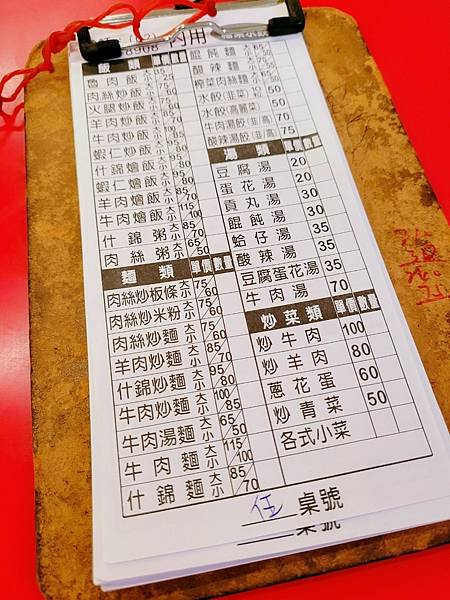 8908 內用
飯類 單價 數量
魯肉飯 大 小 35 25
肉絲炒飯 大 小
火腿炒飯 大 小
羊肉炒飯 大 小
牛肉炒飯 大 小
蝦仁炒飯 大 小 95 80
什錦燴飯 大 小 95 80
蝦仁燴飯 大 小 95 80
羊肉燴飯 大 小 85 70
牛肉燴飯 大 小 115 100
什錦粥 大 小 85 70
肉絲粥 大 小 65 50
麵類 單價 數量
肉絲炒板條 大 小 75 60
肉絲炒米粉 大 小 75 60
肉絲炒麵 大 小 75 60
羊肉炒麵 大 小 85 70
什錦炒麵 大 小 95 80
牛肉炒麵 大 小 100 85
牛肉湯麵 大 小 65 50
牛肉麵 大 小 115 100
什錦麵 大 小 85 70
餛飩麵 大 小 65 50
酸辣麵 大 小
榨菜肉絲麵 大 小
水餃(韭菜)
水餃(高麗菜) 50
牛肉湯餃(韭/高) 70
酸辣湯餃(韭/高) 75
湯類 單價 數量
豆腐湯 20
蛋花湯 20
貢丸湯 30
餛飩湯 30
蛤仔湯 35
酸辣湯 35
豆腐蛋花湯 35
牛肉湯 70
炒菜類 單價 數量
炒牛肉 100
炒羊肉 80
蔥花蛋 60
炒青菜 50
各式小菜
桌號
桌號